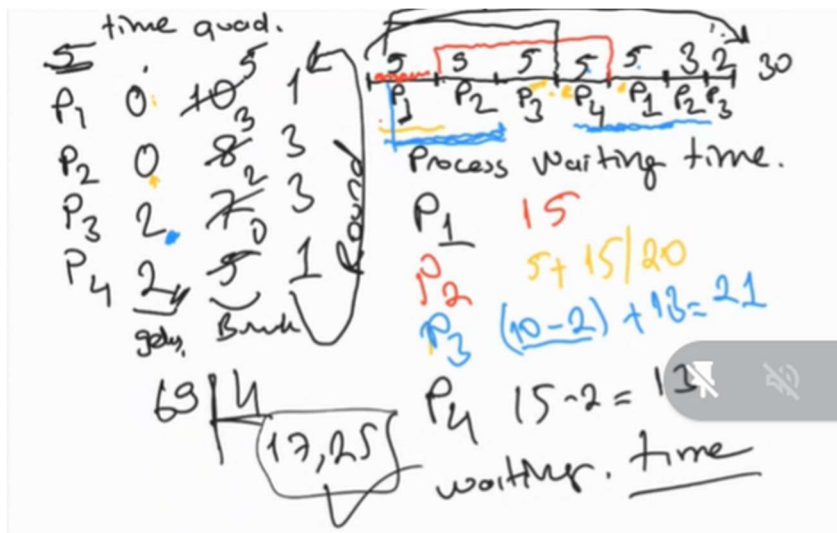 5 time quad.
P1 0 10 5 1
P2 0 8 3 3
P3 2 7 2 3
P4 2 5 0 1
Burst
Round
5 5 5 5 5 3 2 30
P1 P2 P3 P4 P1 P2 P3
Process waiting time.
P1 15
P2 5+15/20
P3 (10-2)+13=21
P4 15-2=13
69 4
17,25
waiting. time